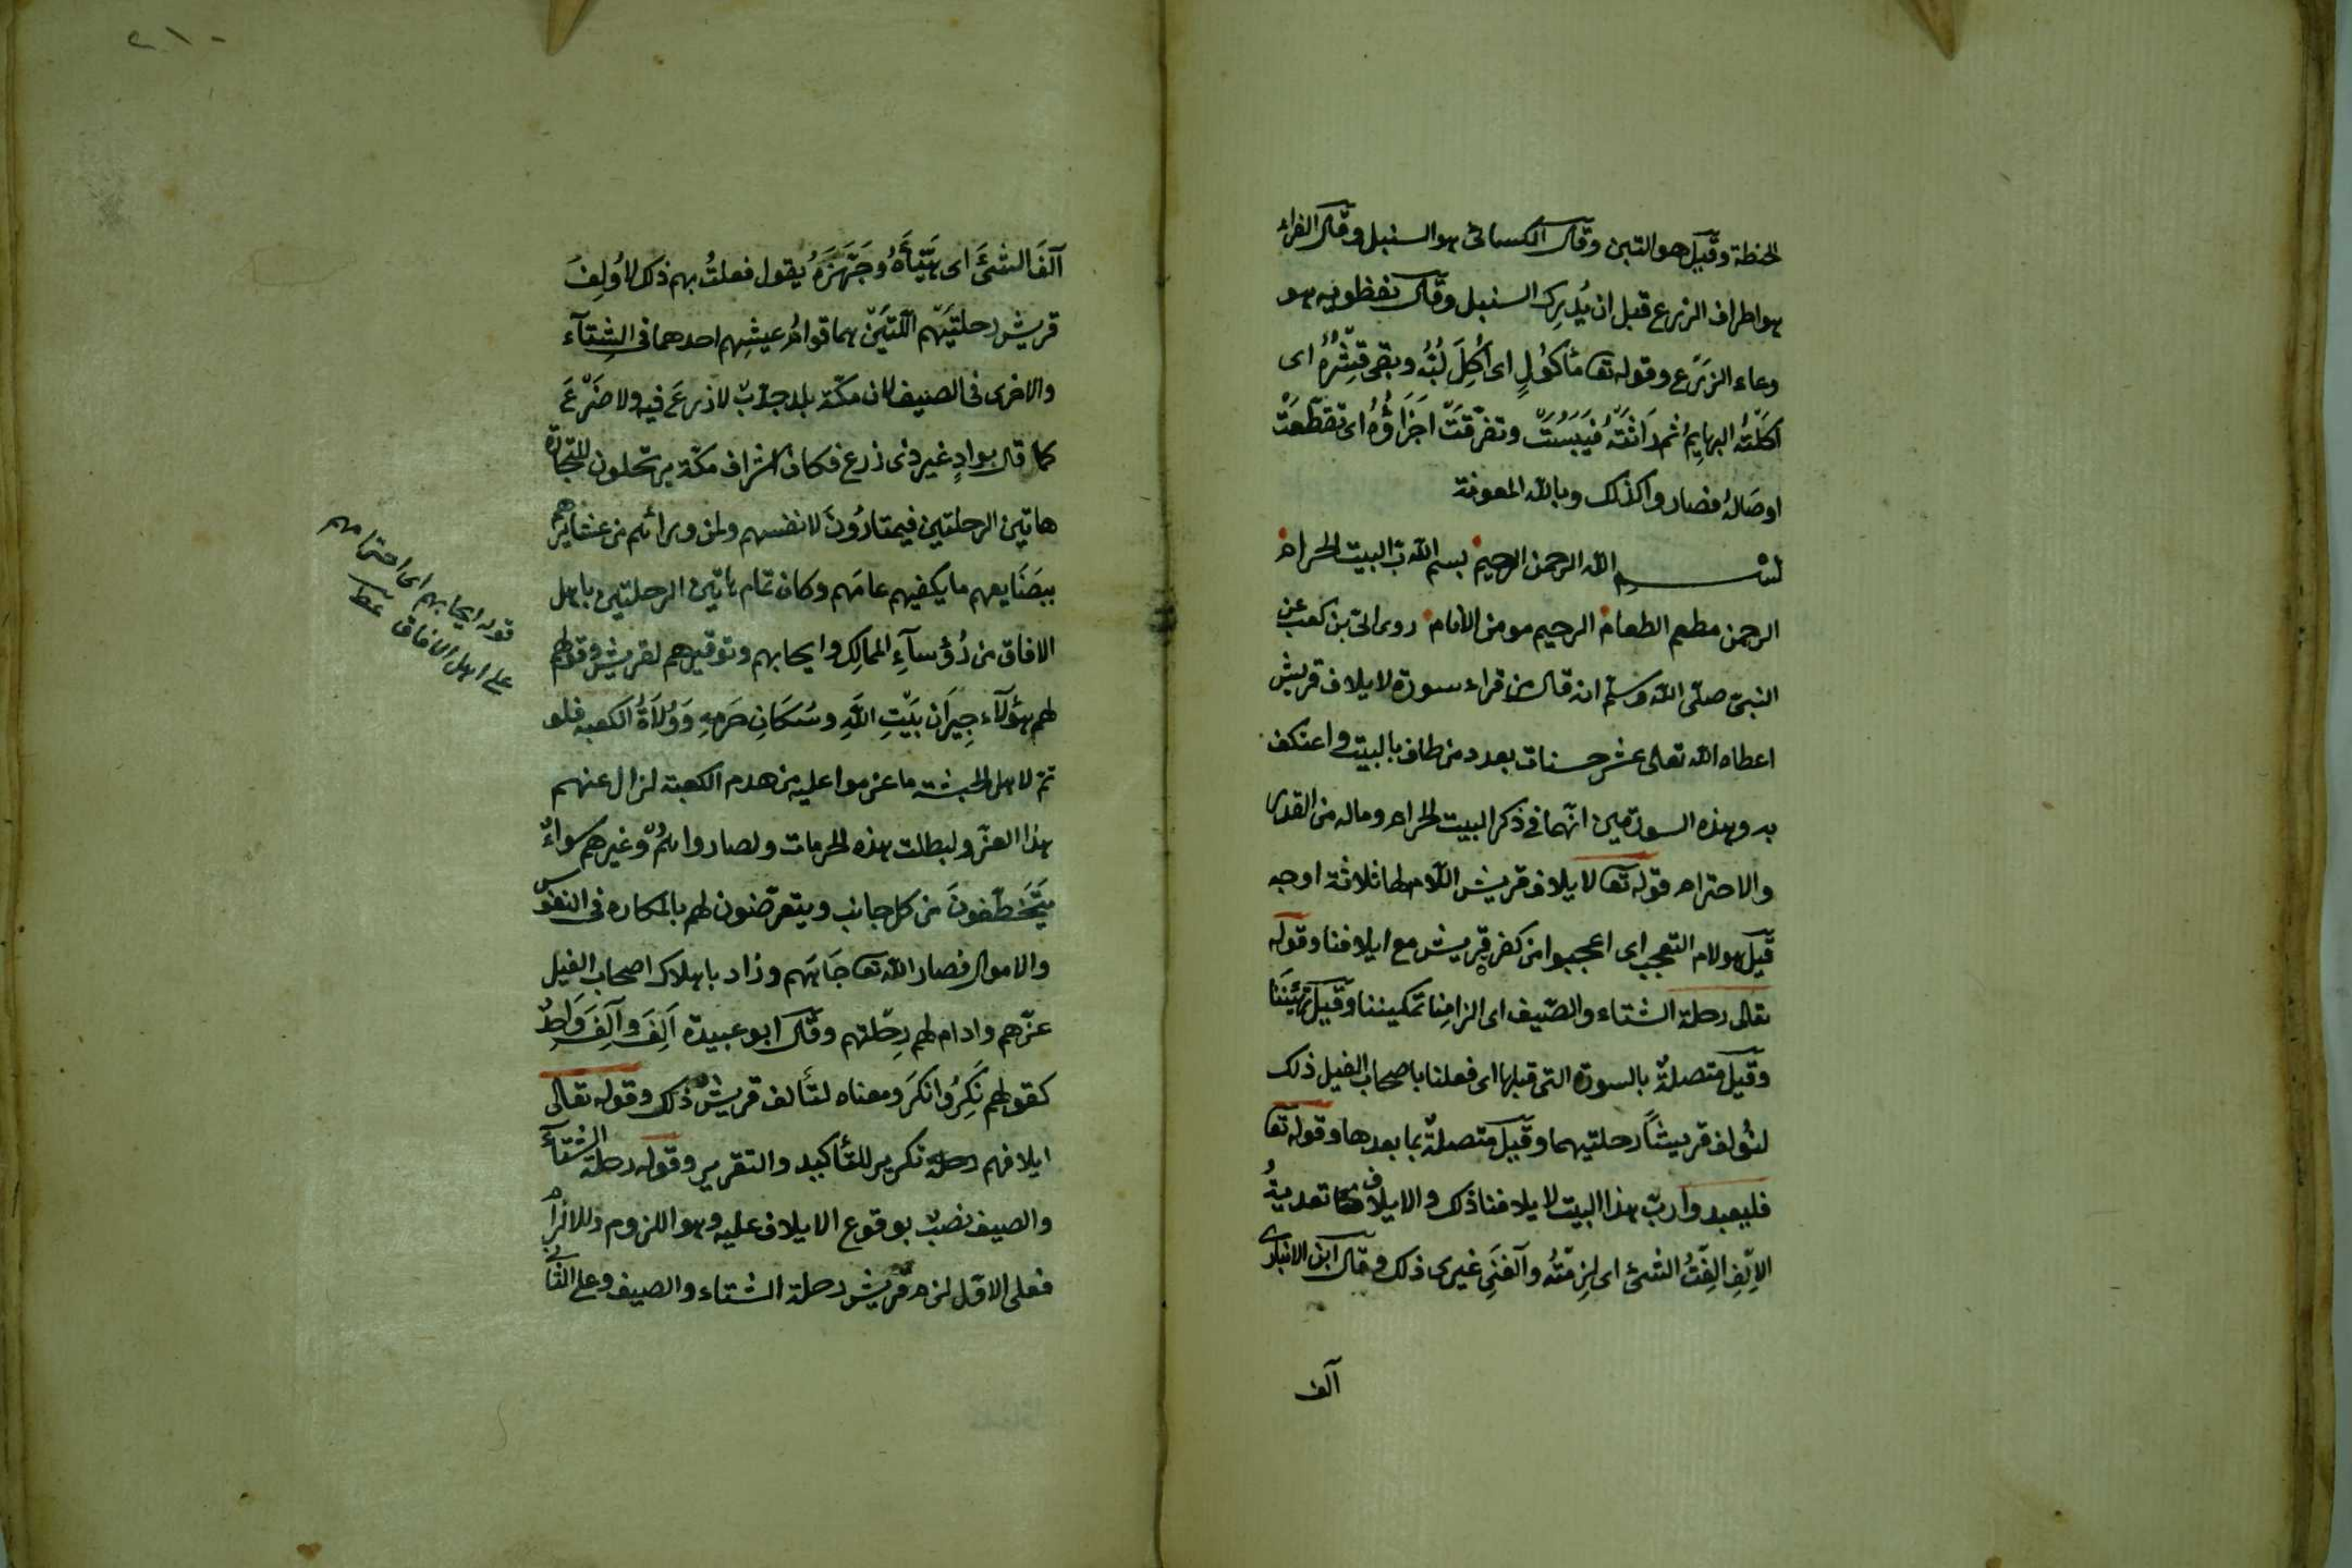 الحنطة وقيل هو التبن وقال الكسائى هو السنبل وقال الفراء
هو اطراف الزرع قبل ان يُدرِك السنبل وقال نفطويه هو
وعاء الزرع وقوله تعا مأكولٍ اى اُكِلَ لُبُّه وبقى قِشْرُهُ اى
اكلَتْهُ البهايمُ ثم رَاثَتْهُ فَيَبِسَتْ وتفرّقتْ اَجزَاؤُهُ اى تقطّعَتْ
اوصَالهُ فصاروا كذلك وبالله المعونة
بسم الله الرحمن الرحيم بسم الله رب البيت الحرام
الرحمن مطعم الطعام الرحيم مومن الأنام روى ابىّ بن كعب عن
النبىّ صلّى الله وسلّم انه قال من قراء سورة لايلاف قريش
اعطاه الله تعالى عشر حسنات بعدد من طاف بالبيت واعتكف
به وهذه السورتين انّهما فى ذكر البيت الحرام وماله من القدر
والاحترام قوله تعا لايلاف قريش اللّام لها ثلاثة اوجه
قيل هو لام التعجب اى اعجبوا من كفر قريش مع ايلافنا وقوله
تعالى رحلة الشتاء والصّيف اى الزامِنا تمكيننا وقيل
وقيل متصلةٌ بالسورة التى قبلها اى فعلنا باصحاب الفيل ذلك
لنُؤلف قريشاً رحلتيهما وقيل متصلةٌ بما بعدها وقوله تعا
فليعبدوا ربّ هذا البيت لايلافنا ذلك والايلاف تعديةُ
الاِلِفِ اَلِفْتُ الشئ اى لزِمْتُه وآلفَنِى غيرى ذلك وقال ابن الانبارى
آلف
٢١٠
آلفَ الشئَ اى هَيَّأَهُ وجَهَّزَهُ يقول فعلتُ بهم ذلك لاُولِفَ
قريش رحلتَيْهم اللّتَيْن هما قوامُ عيشِهم احدهما فى الشتآء
والاخرى فى الصيف لان مكّة بلد جدْبٌ لا زرعَ فيه ولا ضَرْعَ
كما قال بوادٍ غير ذى زرع فكان اشراف مكّة يرتحلون للتجارة
هاتين الرحلتين فيمتارُونَ لانفسهم ولمن ورائهم من عشايرهم
ببضَايعهم ما يكفيهم عامَهم وكان تمام هاتين الرحلتين باهل
الافاق من رُؤسآءِ الممالِك وايجابهم وتوقيرهم لقريش وقولهم
لهم هؤلآء جِيرَان بَيْتِ اللهِ وسُكَّانِ حَرَمِهِ وَوُلَاةُ الكعبه فلو
تمّ لاهل الحبشة ما عزموا عليه من هدم الكعبة لزال عنهم
هذا العزّ ولبطلت هذه الحرمات ولصاروا هُمْ وغيرهم سواءٌ
يَتَخَطَّفونَ من كل جانب ويتعرّضون لهم بالمكاره فى النفوس
والاموال فصار الله تعا جَاهَهم وزاد باهلاك اصحاب الفيل
عزّهم وادام لهم رِحلتهم وقال ابو عبيدة اَلِفَ وآلَفَ وَاحدٌ
كقولهم نَكِرَ وانكَرَ ومعناه لتألف قريش ذلك وقوله تعالى
ايلافهم رحلة تكرير للتأكيد والتقرير وقوله رحلة الشتآء
والصيف نصبٌ بوقوع الايلاف عليه وهو اللزوم وللالزام
فعلى الاوّل لزم قريش رحلة الشتاء والصيف وعلى الثانى
قوله ايجابهم اى احترامهم
على اهل الافاق